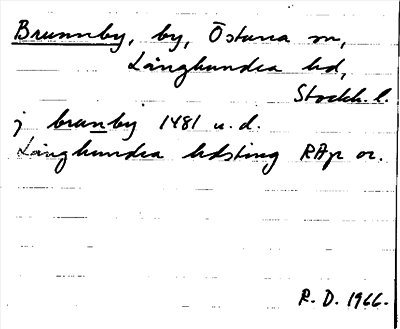 Brunnby, by, Östuna sn,
Långhundra hd,
Stockh. l.
j brunby 1481 u. d.
Långhundra hdsting RAp or.
R. D. 1966.